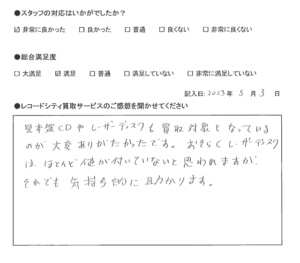 ●スタッフの対応はいかがでしたか?
☑ 非常に良かった □ 良かった □ 普通 □ 良くない □ 非常に良くない
●総合満足度
□ 大満足 ☑ 満足 □ 普通 □ 満足していない □ 非常に満足していない
記入日: 2023年 5月 3日
●レコードシティ買取サービスのご感想を聞かせてください
見本盤CDやレーザーディスクも買取対象となっている
のが大変ありがたかったです。おそらくレーザーディスク
は、ほとんど値が付いていないと思われますが、
それでも気持ち的に助かります。